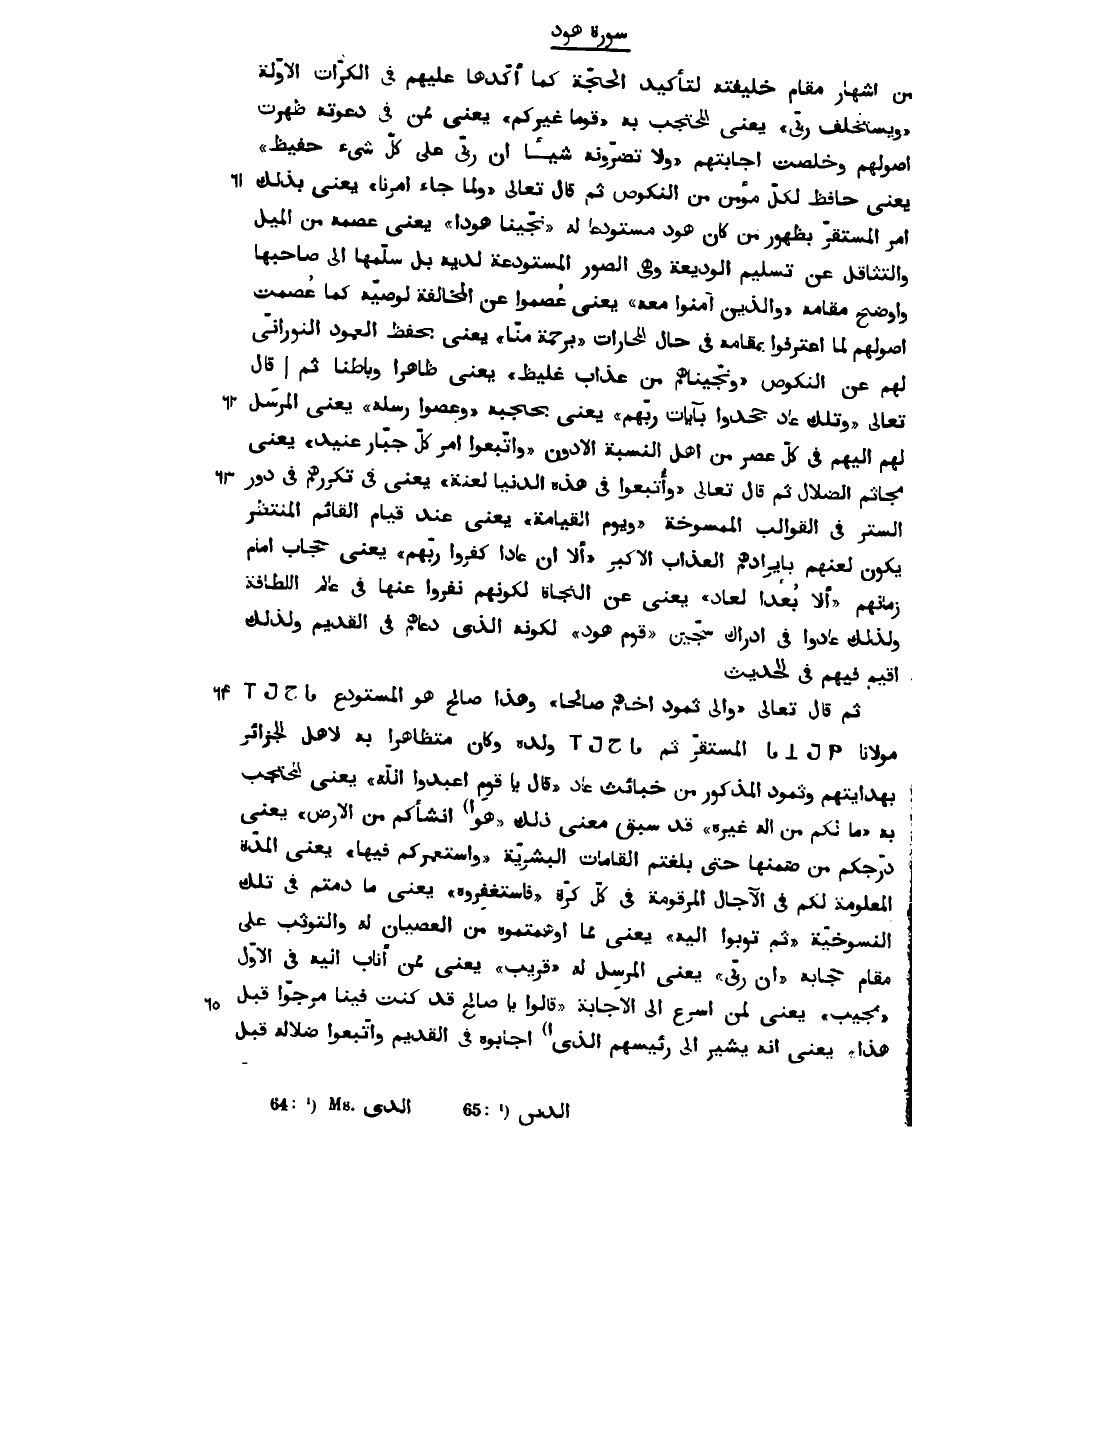 سورة هود
من اشهار مقام خليفته لتأكيد الحجّة كما أكّدها عليهم فى الكرّات الاوّلة
«ويستخلف ربّى» يعنى المحتجب به «قوما غيركم» يعنى ممن فى دعوته ظهرت
اصولهم وخلصت اجابتهم «ولا تضرّونه شيئًا ان ربّى على كلّ شىء حفيظ»
يعنى حافظ لكلّ مؤمن من النكوص ثم قال تعالى «ولما جاء امرنا» يعنى بذلك ٦١
امر المستقرّ بظهور من كان هود مستودعا له «نجّينا هودا» يعنى عصمه من الميل
والتثاقل عن تسليم الوديعة وهى الصور المستودعة لديه بل سلّمها الى صاحبها
واوضح مقامه «والذين آمنوا معه» يعنى عُصموا عن المخالفة لوصيّه كما عُصمت
اصولهم لما اعترفوا بمقامه فى حال المحارات «برحمة منّا» يعنى بحفظ العمود النورانىّ
لهم عن النكوص «ونجّيناهم من عذاب غليظ» يعنى ظاهرا وباطنا ثم | قال
تعالى «وتلك عاد جحدوا بآيات ربّهم» يعنى بحاجبه «وعصوا رسله» يعنى المرسَل ٦٢
لهم اليهم فى كلّ عصر من اهل النسبة الادون «واتّبعوا امر كلّ جبّار عنيد» يعنى
مجاثم الضلال ثم قال تعالى «وأُتبعوا فى هذه الدنيا لعنة» يعنى فى تكررهم فى دور ٦٣
الستر فى القوالب الممسوخة «ويوم القيامة» يعنى عند قيام القائم المنتظر
يكون لعنهم بايرادهم العذاب الاكبر «ألا ان عادا كفروا ربّهم» يعنى حجاب امام
زمانهم «ألا بُعدا لعاد» يعنى عن النجاة لكونهم نفروا عنها فى عالم اللطافة
ولذلك عادوا فى ادراك سجّين «قوم هود» لكونه الذى دعاهم فى القديم ولذلك
اقيم فيهم فى الحديث
ثم قال تعالى «والى ثمود اخاهم صالحا» وهذا صالح هو المستودع ٦٤
مولانا المستقرّ ثم ولده وكان متظاهرا به لاهل الجزائر
بهدايتهم وثمود المذكور من خبائث عاد «قال يا قوم اعبدوا الله» يعنى المحتجب
به «ما لكم من اله غيره» قد سبق معنى ذلك «هو¹⁾ انشأكم من الارض» يعنى
درّجكم من ضمنها حتى بلغتم القامات البشريّة «واستعمركم فيها» يعنى المدّة
المعلومة لكم فى الآجال المرقومة فى كلّ كرّة «فاستغفروه» يعنى ما دمتم فى تلك
النسوخيّة «ثم توبوا اليه» يعنى مما اوهمتموه من العصيان له والتوثب على
مقام حجابه «ان ربّى» يعنى المرسِل له «قريب» يعنى ممن أناب اليه فى الاوّل
«مجيب» يعنى لمن اسرع الى الاجابة «قالوا يا صالح قد كنت فينا مرجوّا قبل ٦٥
هذا» يعنى انه يشير الى رئيسهم الذى¹⁾ اجابوه فى القديم واتّبعوا ضلاله قبل
64: ¹) Ms. الدى 65: ¹)